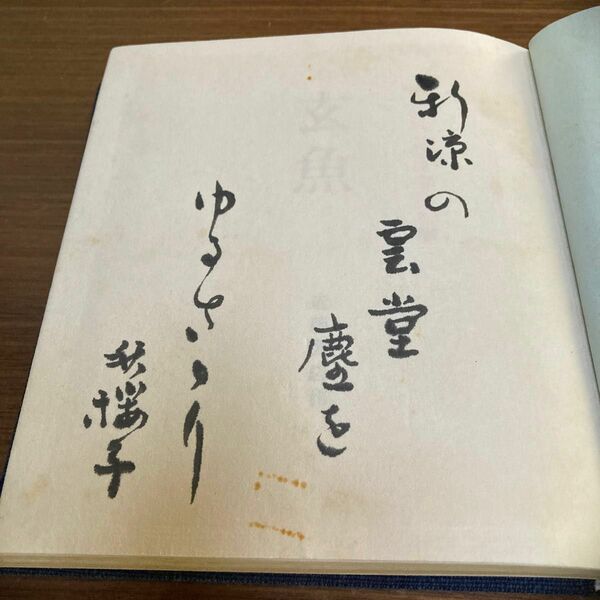 新涼の
雲堂
塵を
ゆるさゝり
秋櫻子
玄魚